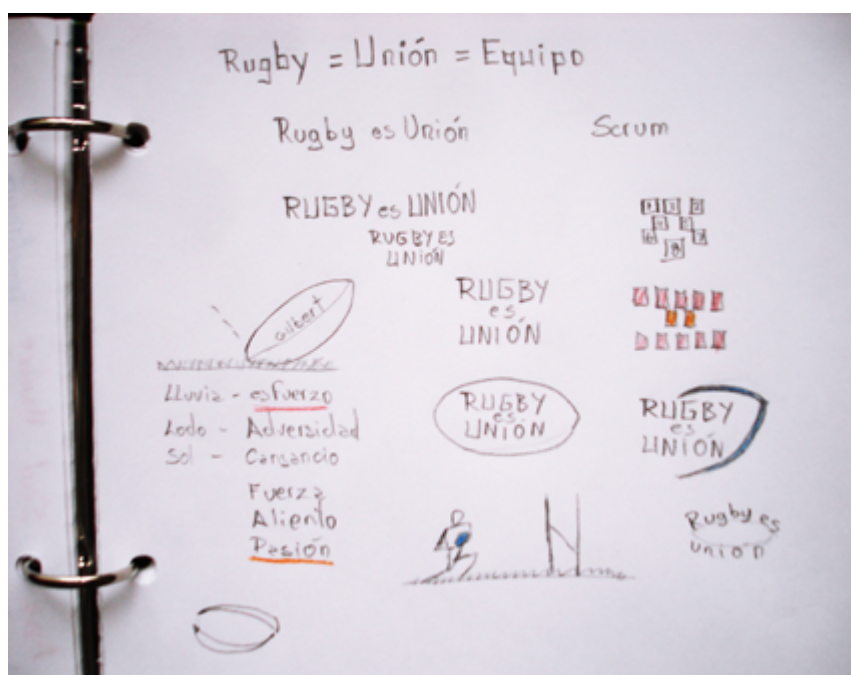 Rugby = Unión = Equipo
Rugby es Unión
Scrum
RUGBY es UNIÓN
RUGBY ES
UNIÓN
Gilbert
RUGBY
es
UNIÓN
Lluvia - esfuerzo
Lodo - Adversidad
Sol - Cansancio
Fuerza
Aliento
Pasión
RUGBY
es
UNIÓN
RUGBY
es
UNIÓN
Rugby es
unión